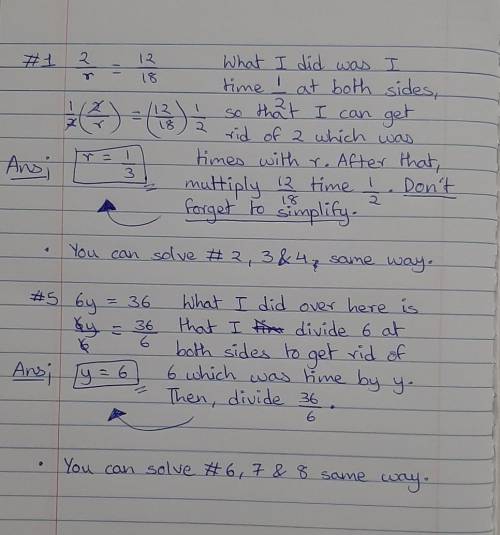 #1 2/r = 12/18 What I did was I
time 1/2 at both sides,
1/2 (2/r) = (12/18) 1/2 so that I can get
rid of 2 which was
Ans; r = 1/3 times with r. After that,
multiply 12/18 time 1/2. Don't
forget to simplify.
• You can solve # 2, 3 & 4, same way.
#5 6y = 36 What I did over here is
6y/6 = 36/6 that I divide 6 at
both sides to get rid of
Ans; y = 6 6 which was time by y.
Then, divide 36/6.
• You can solve #6, 7 & 8 same way.